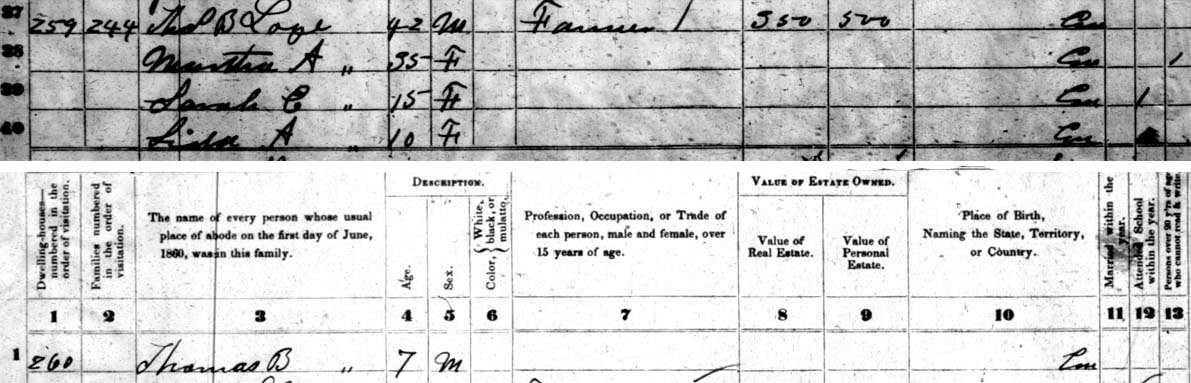 37 259 244 Thos B Love 42 M Farmer 1 350 500
38 Martha A " 35 F 1
39 Sarah C " 15 F 1
40 A " 10 F
DESCRIPTION. VALUE OF ESTATE OWNED.
Dwelling-houses—numbered in the order of visitation.
Families numbered in the order of visitation.
The name of every person whose usual
place of abode on the first day of June,
1860, was in this family.
Age.
Sex.
Color, { White, black, or mulatto. }
Profession, Occupation, or Trade of
each person, male and female, over
15 years of age.
Value of
Real Estate.
Value of
Personal
Estate.
Place of Birth,
Naming the State, Territory,
or Country.
Married within the year.
Attended School within the year.
Persons over 20 y'rs of age who cannot read & write
1 2 3 4 5 6 7 8 9 10 11 12 13
1 260 Thomas B " 7 M